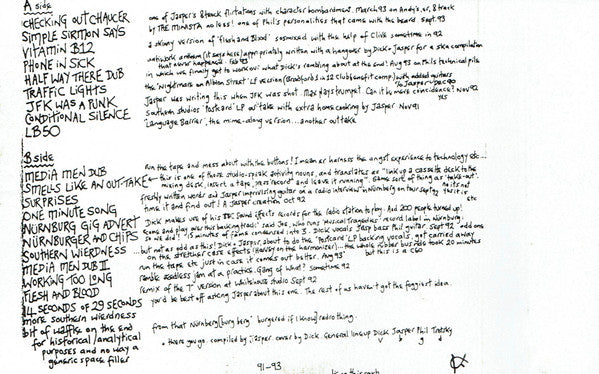 A side
CHECKING OUT CHAUCER
SIMPLE SIRMON SAYS
VITAMIN B12
PHONE IN SICK
HALF WAY THERE DUB
TRAFFIC LIGHTS
JFK WAS A PUNK
CONDITIONAL SILENCE
LB50
one of Jasper's 8 track flirtations with character bombardment. March 93 on Andy's, er, 8 track
by THE MINISTA no less! one of Phil's personalities that came with the beard. Sept. 93
a skinny version of 'flesh and Blood' sesmixed with the help of Clive sometime in 92
antiwork anthem (it says here) appropriately written with a hangover by Dick + Jasper for a ska compilation
that never happened - Feb 93
in which we finally get to work out what Dick's rambling about at the end! Aug 93 on Phil's technical pile
the 'Nightmare on Albion Street' LP version (Bradford's in 12 club benefit comp) with added guitars
To Jasper - Dec 90
Jasper was writing this when JFK was shot. Max plays trumpet. Can it be mere coincidence? Nov 92
Southern studios 'Postcard' LP out take with extra home cooking by Jasper Nov 91
yes
'Language Barrier', the mime-along version... another outtake
B side
MEDIA MEN DUB
SMELLS LIKE AN OUT-TAKE
SURPRISES
ONE MINUTE SONG
NURNBURG GIG ADVERT
NÜRNBURGER AND CHIPS
SOUTHERN WIERDNESS
MEDIA MEN DUB II
WORKING TOO LONG
FLESH AND BLOOD
14 SECONDS OF 29 SECONDS
more southern wierdness
bit of waffle on the end
for historical/analytical
purposes and no way a
generic space filler
run the tape and mess about with the buttons! I mean er harness the angst experience to technology etc...
this is one of those studio-speak activity nouns, and translates as "link up a cassette deck to the
mixing desk, insert a tape, press 'record' and leave it running". Same sort of thing as 'take-out'.
no its not
freshly written words and Jasper improvising guitar on a radio interview in Nürnberg on tour sept 92
yes it is
etc
time it and find out! A Jasper creation! Oct 92
Dick makes use of his BBC Sound effects records for the radio station to play. And 200 people turned up!
'come and play over this backing track' said Joe, who runs 'Musical Tragedies' record label in Nürnburg.
so we did! 15 minutes of fame condensed into 3. Dick vocals Jasp bass Phil guitar. Sept 92 'add one
...but not as odd as this! Dick + Jasper about to do the 'Postcard' LP backing vocals, got carried away
on the stretcher case effects (family on the harmonizer)... the whole rubber bus ride took 20 minutes
run the tape etc just in case it comes out better. Aug 93
but this is a C60
ramble endless jam at a practice. Gang of what? sometime 92
remix of the '7" version at Whitehouse studio Sept 92
you'd be best off asking Jasper about this one. The rest of us haven't got the foggiest idea.
from that Nürnberg [burg berg burgered if I know] radio thing.
• there you go. compiled by Jasper cover by Dick. General lineup Dick Jasper Phil Trotsky
v b g d
91-93